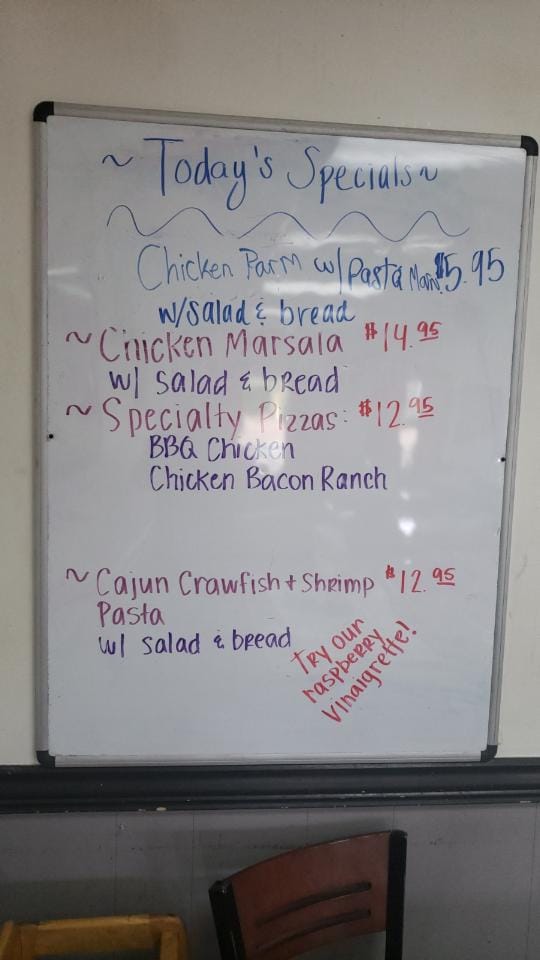 ~ Today's Specials ~
Chicken Parm w/ Pasta Mari $5.95
w/Salad & bread
~ Chicken Marsala $14.95
w/ Salad & bread
~ Specialty Pizzas: $12.95
BBQ Chicken
Chicken Bacon Ranch
~ Cajun Crawfish + Shrimp $12.95
Pasta
w/ salad & bread
Try our
raspberry
Vinaigrette!